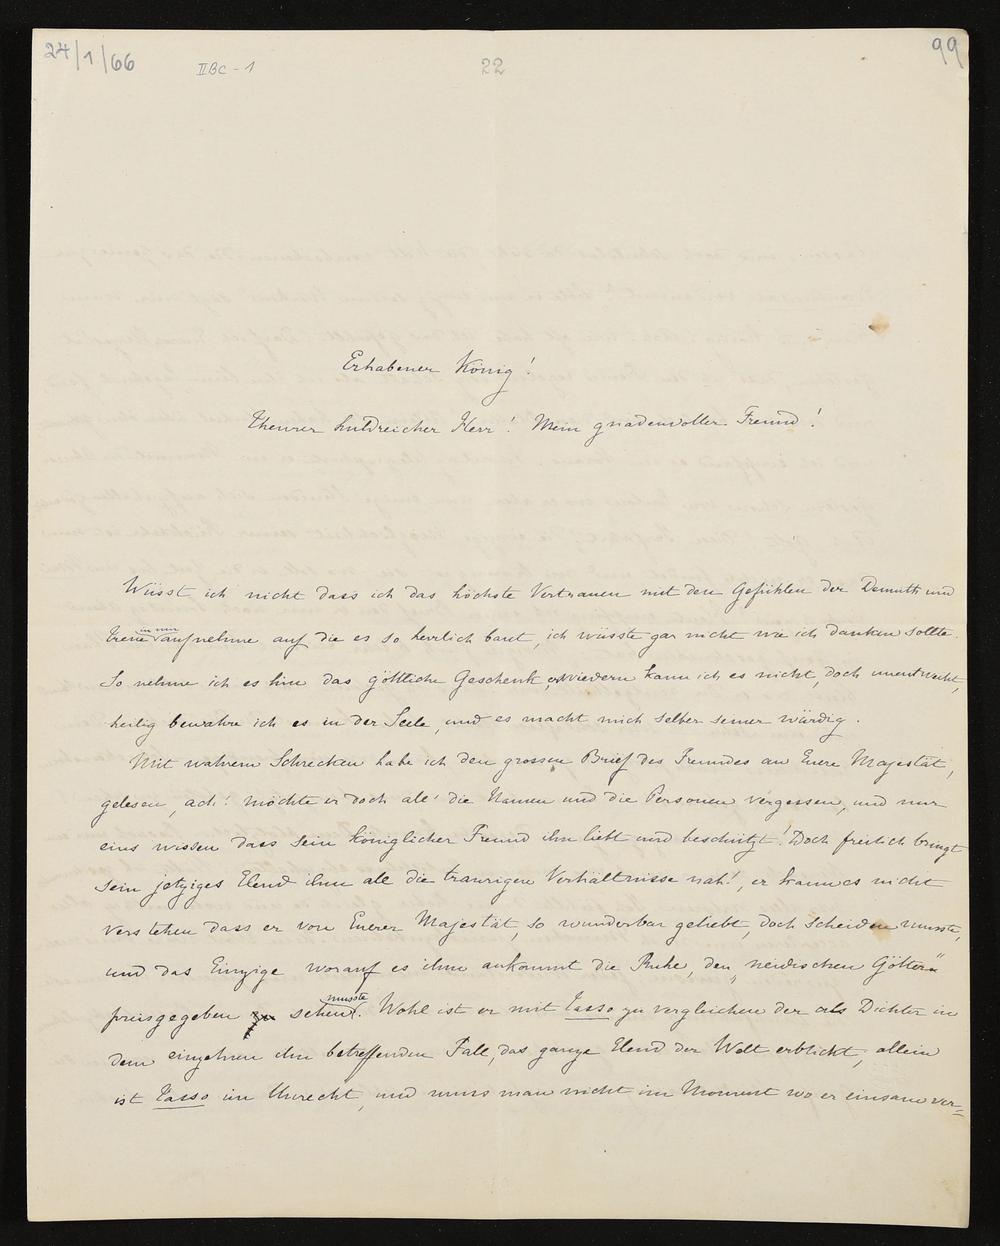 24/1/66 IIBC-1 22 99
Erhabener König!
Theurer huldreicher Herr! Mein gnadenvoller Freund!
Wüsst ich nicht dass ich das höchste Vertrauen mit den Gefühlen der Demuth und
Treue in mir aufnehme auf die es so herrlich baut, ich wüsste gar nicht wie ich danken sollte.
So nehme ich es hin das göttliche Geschenk, erwiedern kann ich es nicht, doch unentweiht,
heilig bewahre ich es in der Seele, und es macht mich selber seiner würdig.
Mit wahrem Schrecken habe ich den grossen Brief des Freundes an Euere Majestät,
gelesen, ach! möchte er doch alle die Namen und die Personen vergessen, und nur
eins wissen dass Sein königlicher Freund ihn liebt und beschützt! Doch freilich bringt
sein jetziges Elend ihm all die traurigen Verhältnisse nah!, er kann es nicht
verstehen dass er von Euerer Majestät, so wunderbar geliebt, doch scheiden musste,
und das Einzige worauf es ihm ankommt die Ruhe, den „neidischen Göttern"
preisgegeben zu sehen musste. Wohl ist er mit Tasso zu vergleichen der als Dichter in
dem einzelnen ihn betreffenden Fall, das ganze Elend der Welt erblickt, allein
ist Tasso im Unrecht, und muss man nicht im Moment wo er einsam ver=